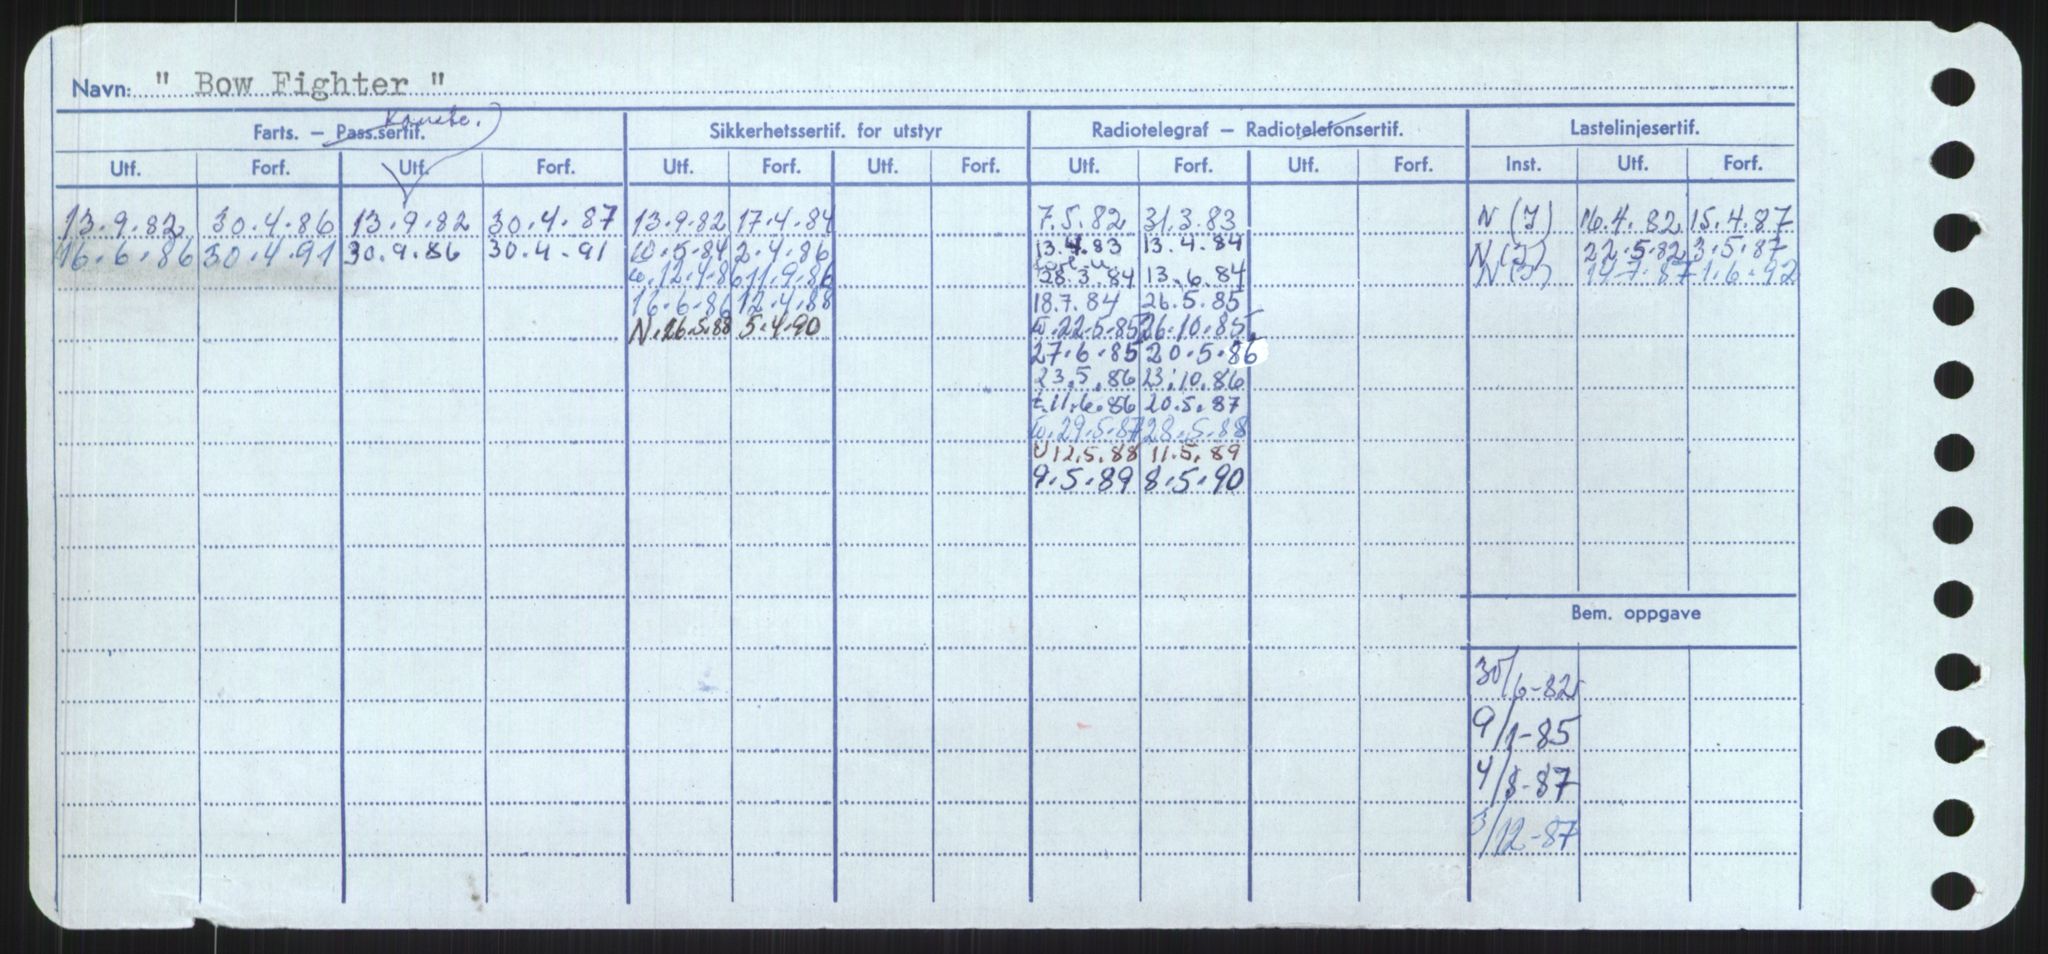 Navn: " Bow Fighter "
Farts. — Pass.sertif. Sikkerhetssertif. for utstyr Radiotelegraf — Radiotelefonsertif. Lastelinjesertif.
Utf. Forf. Utf. Forf. Utf. Forf. Utf. Forf. Utf. Forf. Utf. Forf. Inst. Utf. Forf.
13.9.82 30.4.86 13.9.82 30.4.87 13.9.82 17.4.84 7.5.82 31.3.83 N (I) 16.4.82 15.4.87
16.6.86 30.4.91 30.9.86 30.4.91 10.5.84 2.4.86 13.4.83 13.4.84 N(I) 22.5.82 3.5.87
12.4.86 11.9.86 28.3.84 13.6.84 1.6.92
16.6.86 12.4.88 18.7.84 26.5.85
N.26.5.88 5.4.90 22.5.85 26.10.85
27.6.85 20.5.86
23.5.86 23.10.86
11.6.86 20.5.87
29.5.87 28.5.88
U 12.5.88 11.5.89
9.5.89 8.5.90
Bem. oppgave
30/6-82
9/1-85
4/8-87
3/12-87